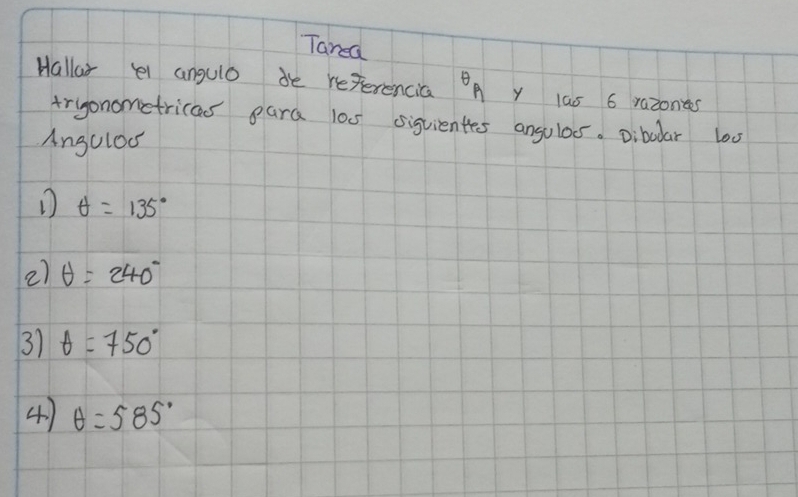 Tarea
Hallar el angulo de referencia θR y las 6 razones
trigonometricas para los siguientes angulos. Dibudar los
Angulos
1) θ = 135°
2) θ = 240°
3) θ = 750°
4) θ = 585°